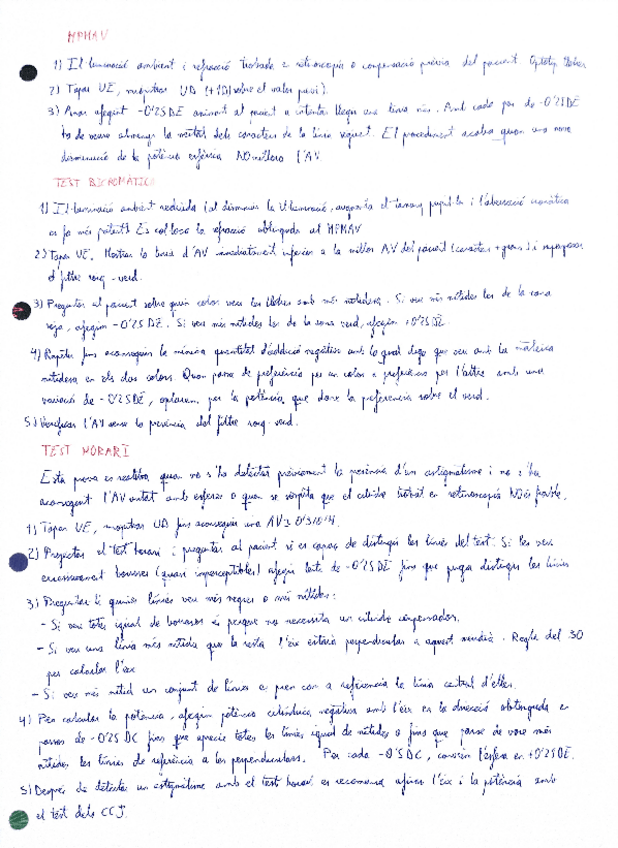 MPMAV
1) Il·luminació ambient i refracció trobada a retinoscopia o compensació prèvia del pacient. Optotip
2) Tapar UE, miopitzar UD (+1D sobre el valor previ).
3) Anar afegint -0'25 DE animant al pacient a intentar llegir una línia més. Amb cada pas de -0'25 DE
ha de veure almenys la meitat dels caràcters de la línia següent. El procediment acaba quan una nova
disminució de la potència esfèrica NO millora l'AV.
TEST BICROMÀTIC
1) Il·luminació ambient reduïda (al disminuir la il·luminació, augmenta el tamany pupil·lar i l'aberració cromàtica
es fa més patent) Es col·loca la refracció obtinguda al MPMAV
2) Tapar UE. Mostrar la línia d'AV immediatament inferior a la millor AV del pacient (caràcters + grans) i superposar
el filtre roig-verd.
3) Preguntar al pacient sobre quin color veu les lletres amb més nitidesa. Si veu més nítides les de la zona
roja, afegim -0'25 DE. Si veu més nítides les de la zona verd, afegim +0'25 DE.
4) Repetir fins aconseguir la mínima quantitat d'addició negativa amb la qual diga que veu amb la mateixa
nitidesa en els dos colors. Quan passa de preferència per un color a preferència per l'altre amb una
variació de -0'25 DE, optarem per la potència que done la preferència sobre el verd.
5) Verificar l'AV sense la presència del filtre roig-verd.
TEST HORARI
Esta prova es realitza quan no s'ha detectat prèviament la presència d'un astigmatisme i no s'ha
aconseguit l'AV unitat amb esferes o quan se sospita que el cilindre trobat en retinoscopia NO és fiable.
1) Tapar UE, miopitzar UD fins aconseguir una AV
2) Projectar el test horari i preguntar al pacient si es capaç de distingir les línies del test. Si les veu
excessivament borroses (quasi imperceptibles) afegir lents de -0'25 DE fins que puga distingir les línies
3) Preguntar-li quines línies veu més negres o més nítides:
- Si veu totes igual de borroses és perque no necessita un cilindre compensador.
- Si veu una línia més nítida que la resta l'eix estarà perpendicular a aquest meridià. Regla del 30
per calcular l'eix
- Si veu més nítid un conjunt de línies es pren com a referència la línia central d'elles.
4) Per calcular la potència, afegim potència cilíndrica negativa amb l'eix en la direcció obtinguda en
passos de -0'25 DC fins que aprecie totes les línies igual de nítides o fins que passe de vore més
nítides les línies de referència a les perpendiculars. Per cada -0'5 DC, canviem l'esfera en +0'25 DE.
5) Després de detectar un astigmatisme amb el test horari es recomana afinar l'eix i la potència amb
el test dels CCJ.